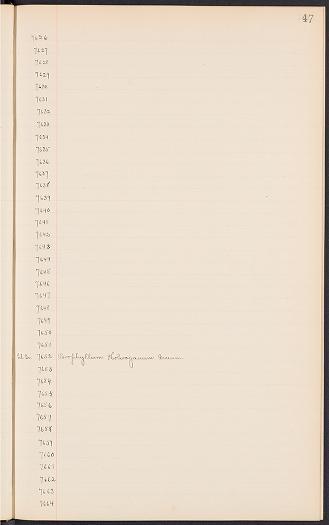 47
7626
7627
7628
7629
7630
7631
7632
7633
7634
7635
7636
7637
7638
7639
7640
7641
7642
7643
7644
7645
7646
7647
7648
7649
7650
7651
7652 Porophyllum
7653
7654
7655
7656
7657
7658
7659
7660
7661
7662
7663
7664